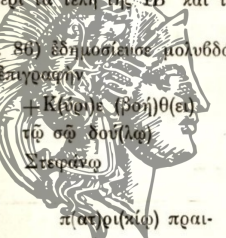 τὰ τέλη τῆς ΙΒ´ καὶ
86) ἐδημοσίευσε μολυβδο
ἐπιγραφὴν
+Κ(ύρι)ε (βοή)θ(ει)
τῷ σῷ δού(λῳ)
Στεφάνῳ
π(ατ)ρι(κίῳ) πραι-